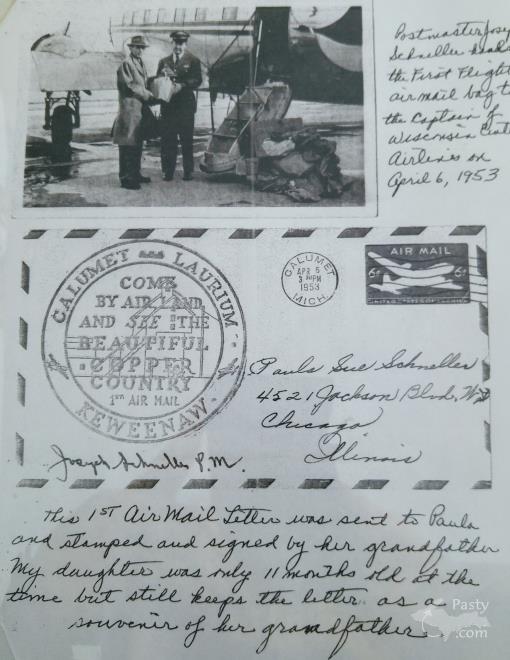 Postmaster Joseph
Schneller hands
the First Flight
airmail bag to
the Captain of
Wisconsin Central
Airlines on
April 6, 1953
CALUMET AND LAURIUM
COME
BY AIR LAND
AND SEE THE
BEAUTIFUL
COPPER
COUNTRY
1ST AIR MAIL
KEWEENAW
CALUMET
APR 6
3 PM
1953
MICH.
AIR MAIL
6¢ 6¢
UNITED STATES OF AMERICA
Paula Sue Schneller
4521 Jackson Blvd. W
Chicago
Illinois
Joseph Schneller P.M.
This 1ST Air Mail Letter was sent to Paula
and stamped and signed by her grandfather
My daughter was only 11 months old at the
time but still keeps the letter as a
souvenir of her grandfather.
Pasty
.com